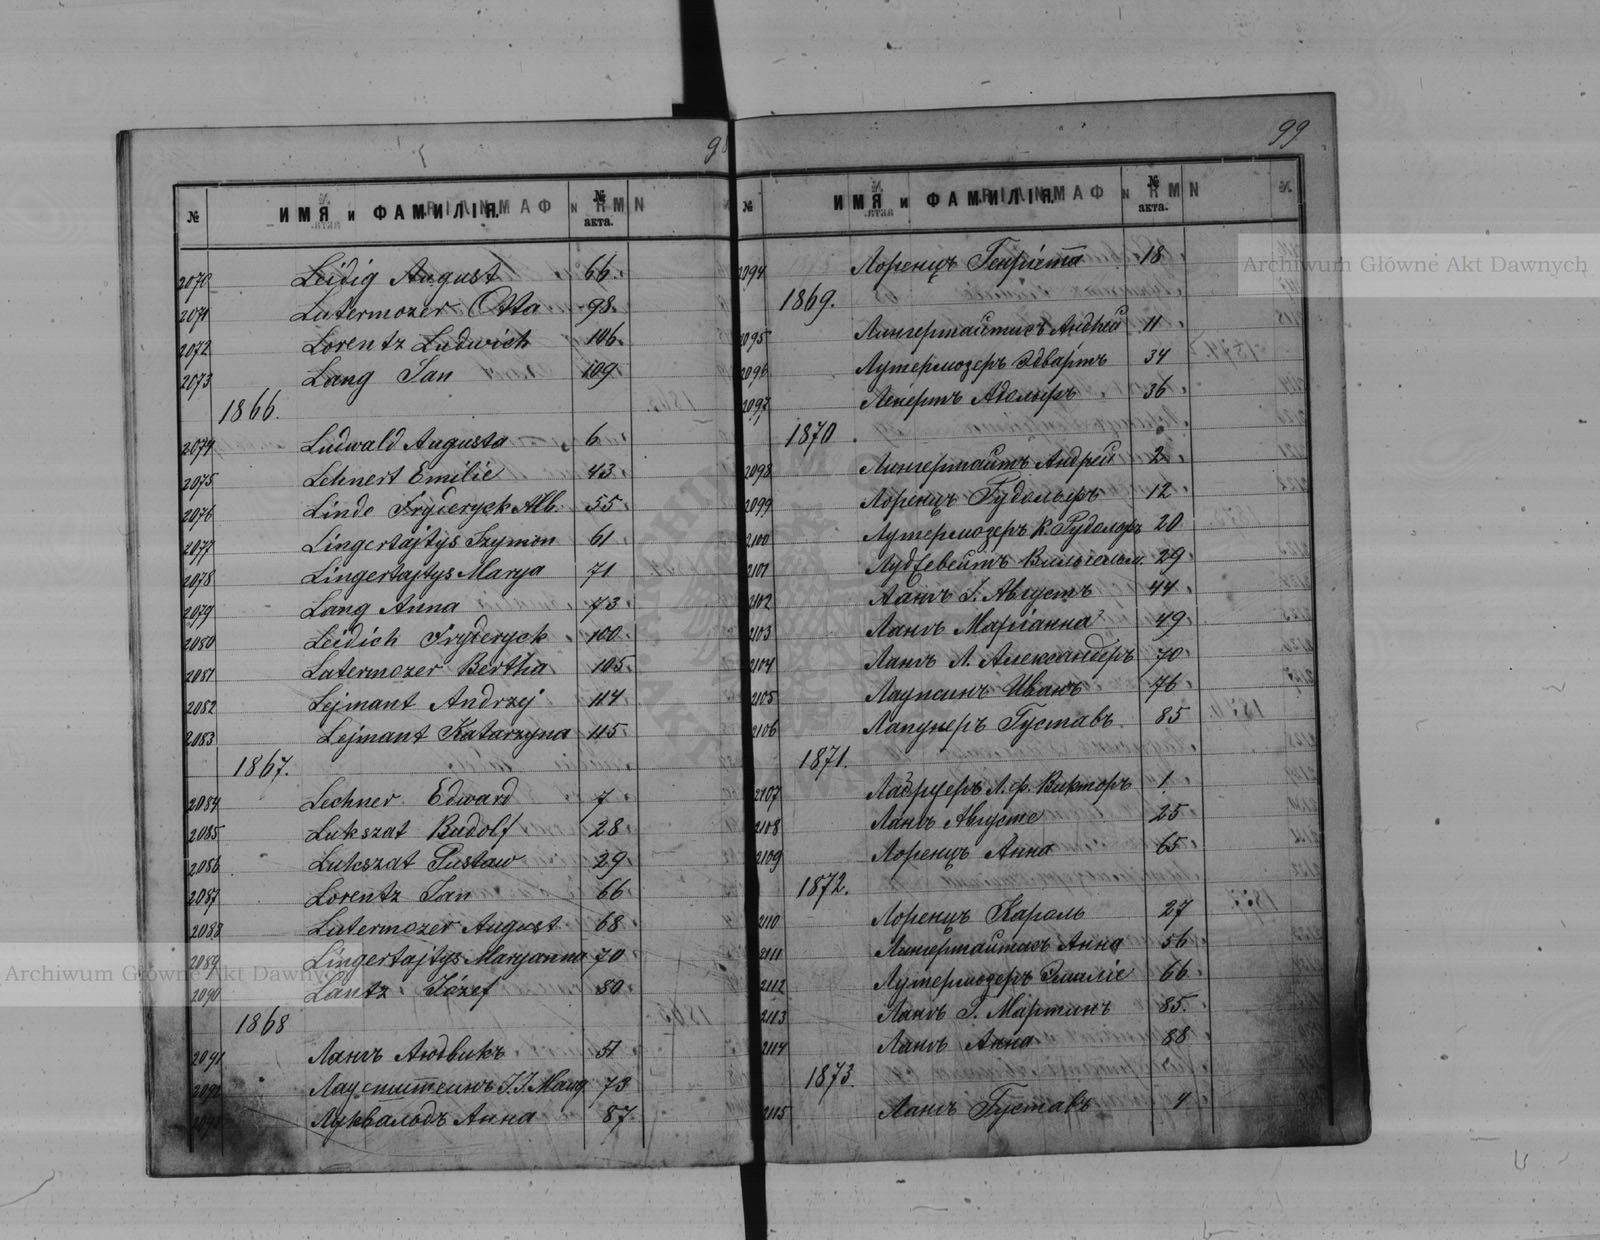 98
№ ИМЯ и ФАМИЛІЯ. № акта.
2070 Leidig August 66
2071 Lutermozer Otto 98
2072 Lorentz Ludwich 106
2073 Lang Jan 109
1866.
2074 Ludwald Augusta 6
2075 Lehnert Emilie 43
2076 Linde Fryderyck Alb. 55
2077 Lingertajtys Szymon 61
2078 Lingertajtys Marya 71
2079 Lang Anna 73
2080 Leidich Fryderyck 100
2081 Lutermozer Bertha 105
2082 Lejmant Andrzej 114
2083 Lejmant Katarzyna 115
1867.
2084 Lechner Edward 7
2085 Lukszat Rudolf 28
2086 Lukszat Gustaw 29
2087 Lorentz Jan 66
2088 Lutermozer August 68
2089 Lingertajtys Maryanna 70
2090 Lantz Józef 80
1868
2091 Лангъ Людвикъ 51
2092 73
Анна 87
99
№ ИМЯ и ФАМИЛІЯ. № акта.
2094 Лоренцъ Генріетта 18
1869.
2095 Лингертайтисъ Андрей 11
2096 Лутермозеръ Эдвартъ 34
2097 Ленертъ Адольфъ 36
1870
2098 Лингертайтъ Андрей 2
2099 Лоренцъ Рудольфъ 12
2100 Лутермозеръ К. Рудольфъ 20
2101 Вильгельм. 29
2102 Лангъ Г. Августъ 44
2103 Лангъ Маріанна 49
2104 Лангъ Л. Александеръ 70
2105 Иванъ 76
2106 Густавъ 85
1871.
2107 Викторъ 1
2108 Лангъ Августе 25
2109 Лоренцъ Анна 65
1872.
2110 Лоренцъ Кароль 27
2111 Лингертайтисъ Анна 56
2112 Лутермозеръ Эмиліе 66
2113 Лангъ Г. Мартинъ 85.
2114 Лангъ Анна 88
1873.
2115 Лангъ Густавъ 4
Archiwum Główne Akt Dawnych
Archiwum Główne Akt Dawnych